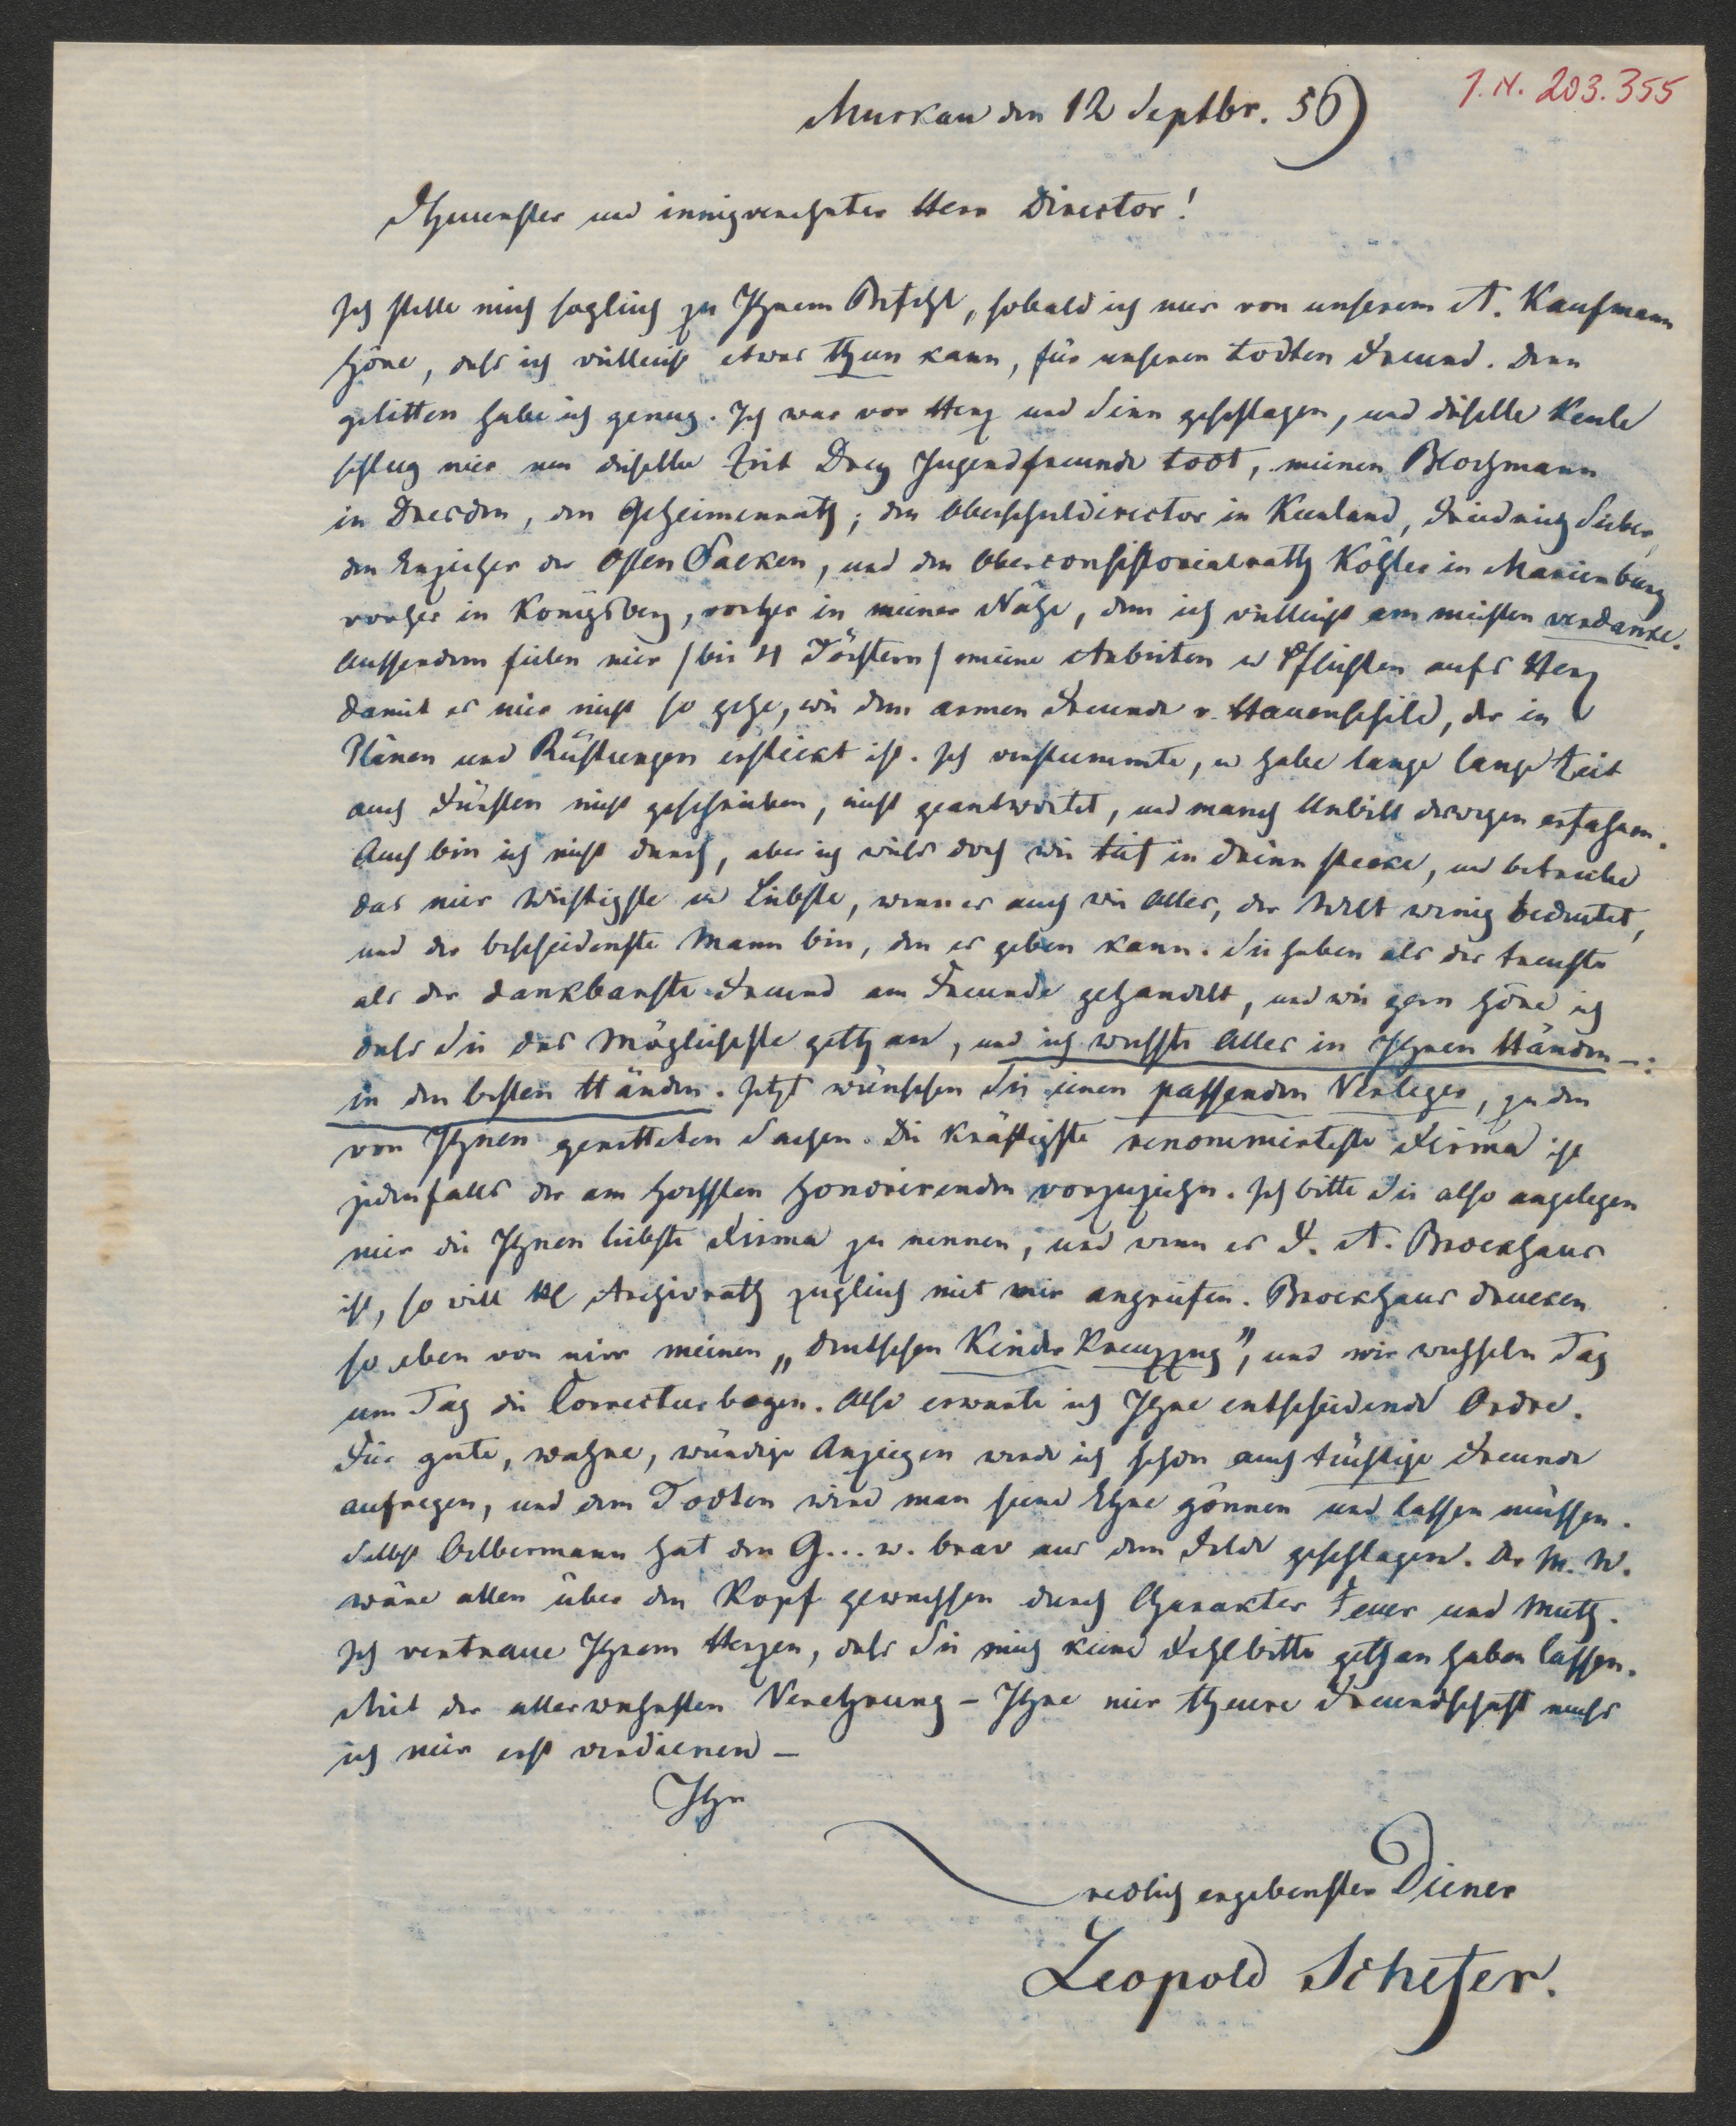 J.N. 203.355
Muskau den 12 Septbr. 56
Theuerster und innigverehrter Herr Director!
Ich stelle mich sogleich zu Ihrem Befehl, sobald ich nur von unserem A. Kaufmann
höre, daß ich vielleicht etwas thun kann, für unseren todten Freund. Denn
gelitten habe ich genug. Ich war vor Herz und Sinn geschlagen, und dieselbe Keule
schlug mir um dieselbe Zeit Drey Jugendfreunde todt, meinen Blochmann
in Dresden, den Geheimenrath; den Oberschuldirector in Kurland, Friedrich
den Erzieher der Osten Sacken, und den Oberconsistorialrath Köhler in Marienburg
vorher in Königsberg, vorher in meiner Nähe, dem ich vielleicht am meisten verdanke.
Ausserdem fielen mir /bei 4 Töchtern/ meine Arbeiten u Pflichten aufs Herz
damit es mir nicht so gehe, wie dem armen Freunde v. Hauenschild, der in
Plänen und Rüstungen erstickt ist. Ich verstummte, u habe lange lange Zeit
auch Fürsten nicht geschrieben, nicht geantwortet, und manch Unbill deswegen erfahren.
Auch bin ich nicht durch, aber ich weiß doch wie tief in drinn stecke, und betreibe
das mir Wichtigste u Liebste, wenn es auch wie Alles, der Welt wenig bedeutet,
und der bescheidenste Mann bin, den es geben kann. Sie haben als der treuste
als der dankbarste Freund am Freunde gehandelt, und wie gern höre ich
daß Sie das Möglichste gethan, und ich wußte Alles in Ihren Händen —:
in den besten Händen. Jetzt wünschen Sie einen passenden Verleger, zu den
von Ihnen geretteten Sachen. Die kräftigste renommirteste Firma ist
jedenfalls der am höchsten honorirenden vorzuziehn. Ich bitte Sie also angelegen
mir die Ihnen liebste Firma zu nennen, und wenn es F. A. Brockhaus
ist, so will H Archivrath zugleich mit mir angreifen. Brockhaus drucken
so eben von mir meinen „deutschen Kinder Kreuzzug", und wir wechseln Tag
um Tag die Correcturbogen. Also erwarte ich Ihre entscheidende Ordre.
Für gute, wahre, würdige Anzeigen werde ich schon auch tüchtige Freunde
aufregen, und dem Todten wird man seine Ehre gönnen und lassen müssen.
Selbst Oelbermann hat den G... w. brav aus dem Felde geschlagen. Der M. W.
wäre allen über den Kopf gewachsen durch Charakter Feuer und Muth.
Ich vertraue Ihrem Herzen, daß Sie mich keine Fehlbitte gethan haben lassen.
Mit der allerwahrsten Verehrung – Ihre mir theure Freundschaft muß
ich mir erst verdienen –
Ihr
redlich ergebenster Diener
Leopold Schefer.